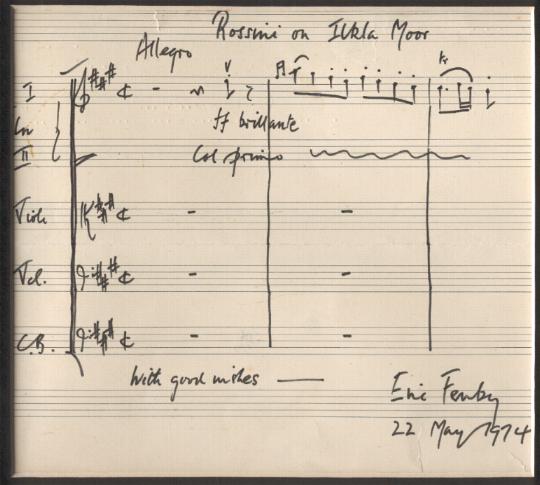 Rossini on Ilkla Moor
Allegro
I
ff brillante
II
Col primo
Viole
Vcl.
C.B.
With good wishes
Eric Fenby
22 May 1974